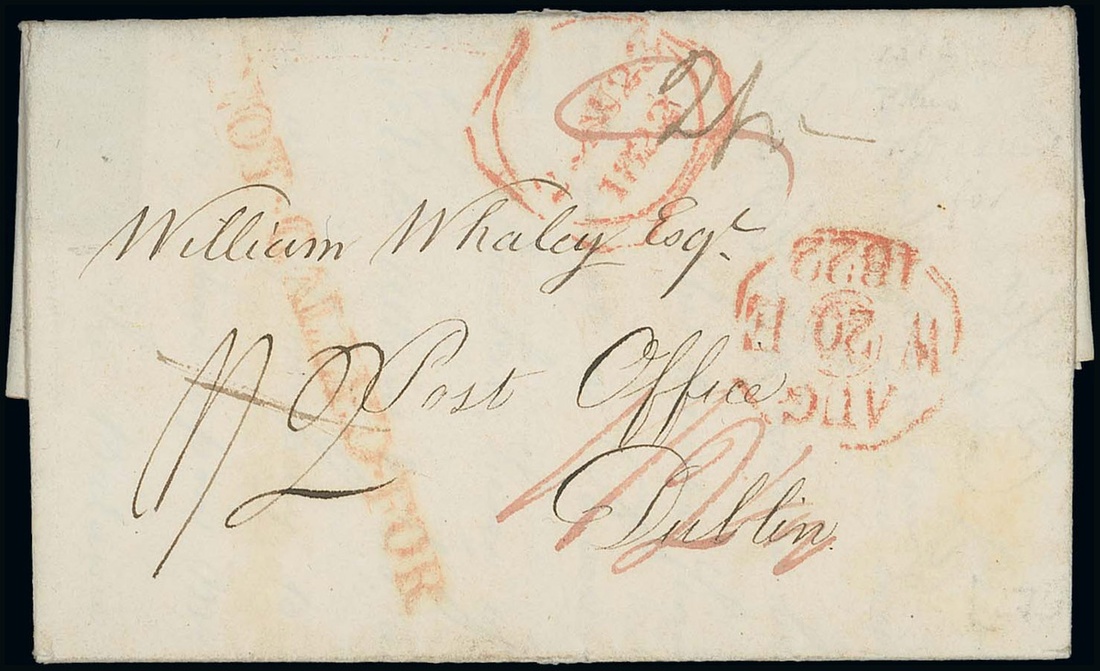 2/-
William Whaley Esqr.
1822
E 20 W
AUG
1/2
Post Office
Dublin
NOT CALLED FOR
1822